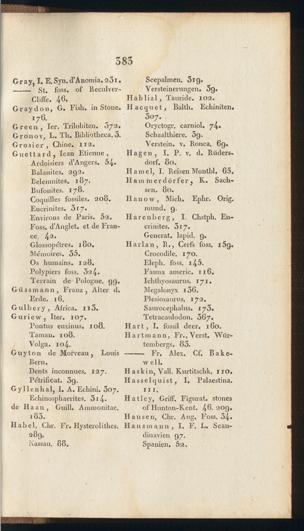 383
Gray, I. E. Syn. d'Anomia. 251.
—— St. foss. of Reculver-
Cliffe. 46.
Graydon, G. Fish. in Stone.
176.
Green, Ier. Trilobiten. 372.
Gronov, L. Th. Bibliotheca. 3.
Grosier, Chine. 112.
Guettard, Iean Etienne,
Ardoisiers d'Angers. 54.
Balanites. 292.
Belemnites. 187.
Bufonites. 178.
Coquilles fossiles. 208.
Encrinites. 317.
Environs de Paris. 52.
Foss. d'Anglet. et de Fran-
ce. 42.
Glossopètres. 180.
Mémoires. 35.
Os humains. 128.
Polypiers foss. 324.
Terrain de Pologne. 99.
Güssmann, Franz, Alter d.
Erde. 16.
Gulbery, Africa. 113.
Guriew, Iter. 107.
Pontus euxinus. 108.
Taman. 108.
Volga. 104.
Guyton de Morveau, Louis
Bern.
Dents inconnues. 127.
Pétrificat. 39.
Gyllenhal, I. A. Echini. 307.
Echinosphaerites. 314.
de Haan, Guill. Ammonitae.
183.
Habel, Chr. Fr. Hysterolithes.
289.
Nassau. 88.
Seepalmen. 319.
Versteinerungen. 39.
Hablizl, Tauride. 102.
Hacquet, Balth. Echiniten.
307.
Oryctogr. carniol. 74.
Schaalthiere. 39.
Verstein. v. Ronca. 69.
Hagen, I. P. v. d. Rüders-
dorf. 80.
Hamel, I. Reisen Montbl. 65.
Hammerdörfer, K. Sach-
sen. 80.
Hanow, Mich. Ephr. Orig.
mund. 9.
Harenberg, I. Chstph. En-
crinites. 317.
Generat. lapid. 9.
Harlan, R., Cerfs foss. 159.
Crocodile. 170.
Eleph. foss. 145.
Fauna americ. 116.
Ichthyosaurus. 171.
Megalonyx 136.
Plesiosaurus, 172.
Saurocephalus. 173.
Tetracaulodon. 367.
Hart, I. fossil deer. 160.
Hartmann, Fr., Verst. Wür-
tembergs. 83.
—— Fr. Alex. Cf. Bake-
well.
Haskin, Vall. Kurtitschk. 110.
Hasselquist, I. Palaestina.
111.
Hatley, Griff. Figurat. stones
of Hunton-Kent. 46. 209.
Hausen, Chr. Aug. Foss. 34.
Hausmann, I. F. L. Scan-
dinavien 97.
Spanien. 52.